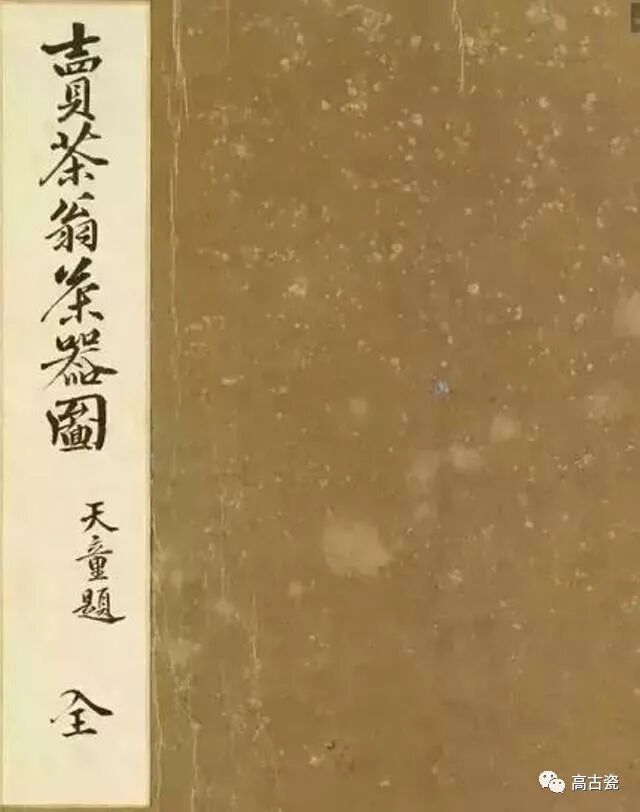 賣茶翁茶器圖
天童題
全
高古瓷